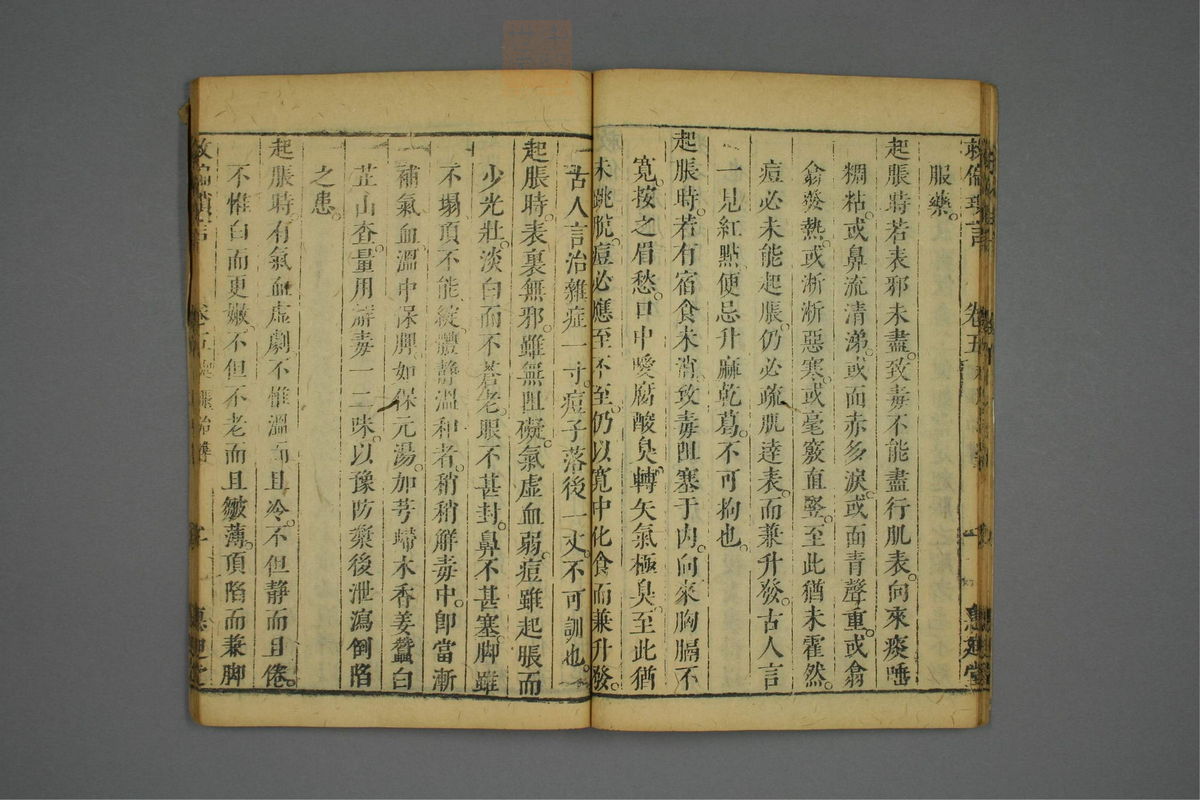 服藥。
起脹時若表邪未盡。致毒不能盡行肌表。向來痰唾
稠粘。或鼻流清涕。或面赤多淚。或面青聲重。或翕
翕發熱。或淅淅惡寒。或毫竅直竪。至此猶未霍然。
痘必未能起脹。仍必疏肌達表。而兼升發。古人言
一見紅點便忌升麻乾葛。不可拘也。
起脹時。若有宿食未消。致毒阻塞于内。向來胸膈不
寬。按之眉愁。口中噯腐酸臭。轉矢氣極臭。至此猶
未跳脫。痘必應至不至。仍以寬中化食而兼升發。
古人言治雜症一寸。痘子落後一丈。不可訓也。
起脹時。表裏無邪。雖無阻礙。氣虛血弱。痘雖起脹而
少光壯。淡白而不蒼老。眼不甚封。鼻不甚塞。脚雖
不塌頂不能綻。體静溫和者。稍稍解毒中。卽當漸
補氣血。溫中保脾。如保元湯。加芎歸木香姜蠶白
芷山查。量用解毒一二味。以豫防藥後泄瀉倒陷
之患。
起脹時。有氣血虛劇。不惟溫而且冷。不但静而且倦。
不惟白而更嫩。不但不老而且皺薄。頂陷而兼脚
卷五